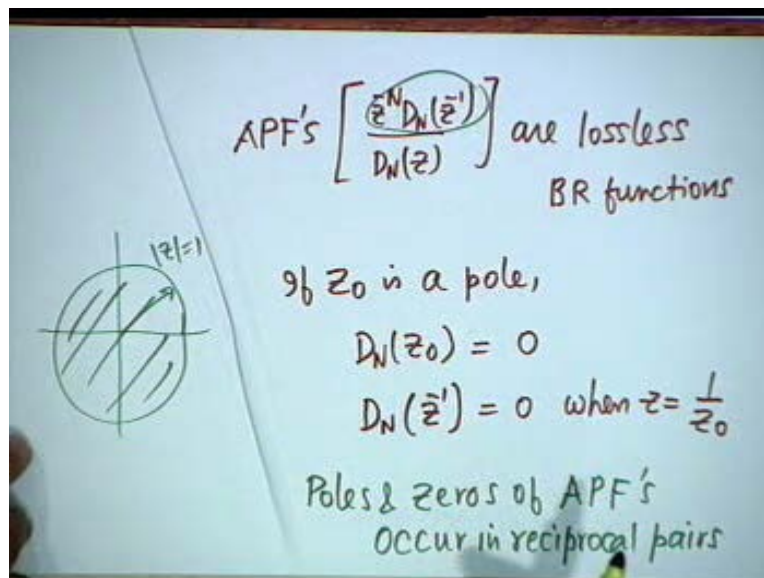 APF's [z⁻ᴺ D_N(z⁻¹) / D_N(z)] are lossless
BR functions
|z|=1
If z₀ is a pole,
D_N(z₀) = 0
D_N(z⁻¹) = 0 when z = 1/z₀
Poles & zeros of APF's
occur in reciprocal pairs